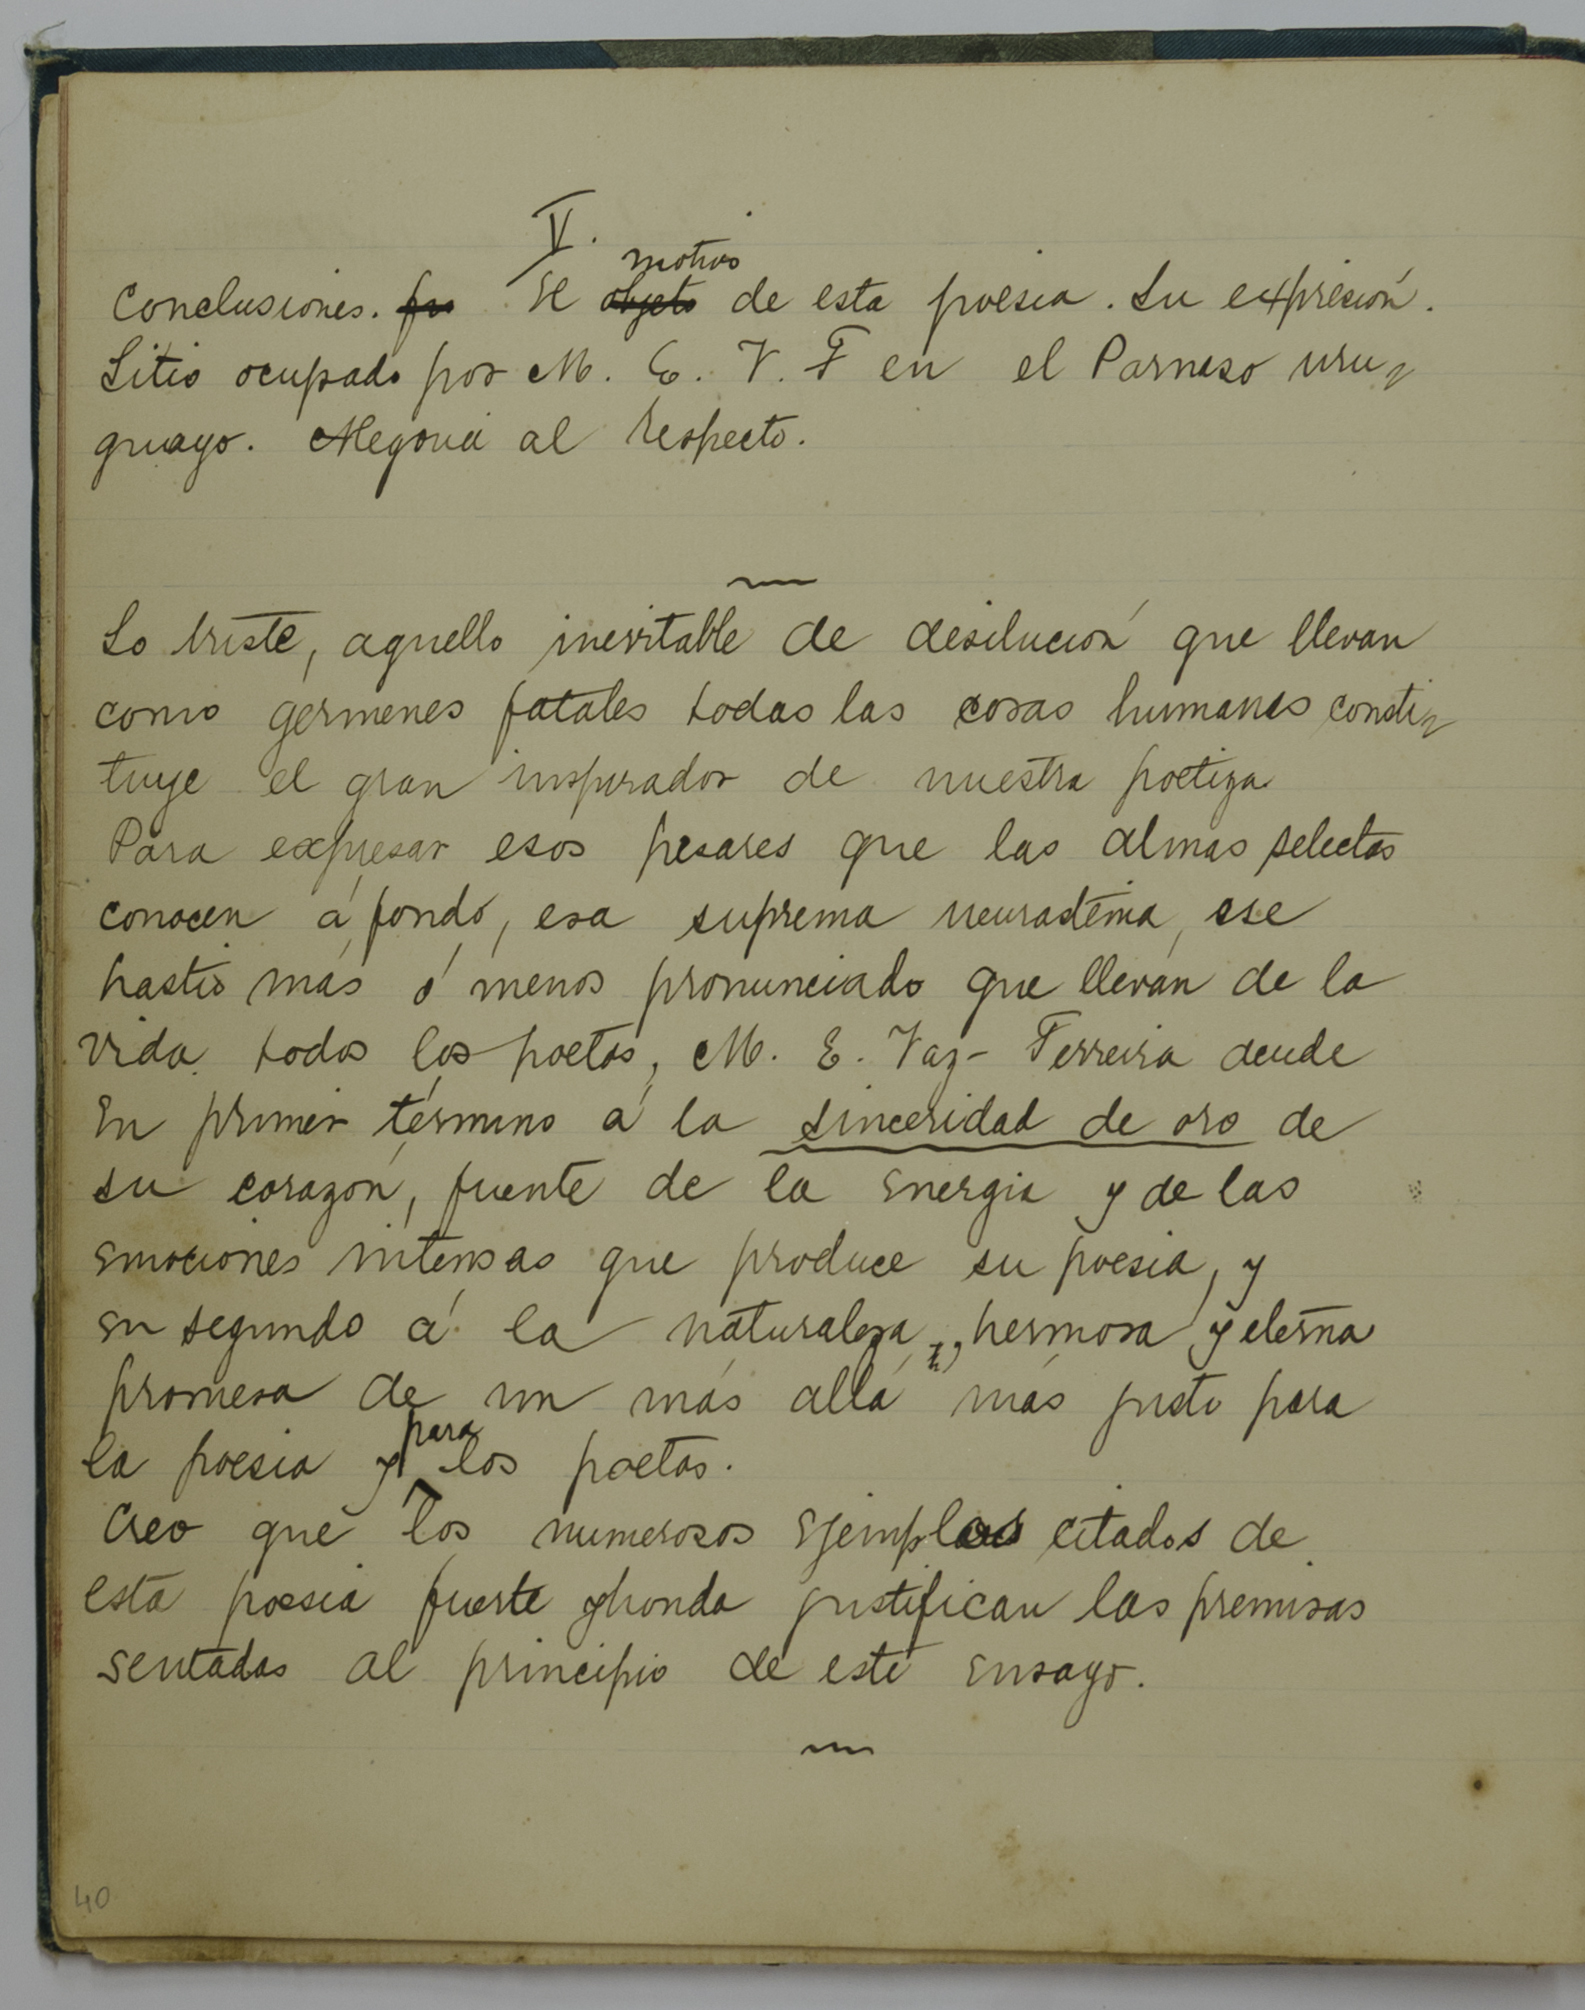 V.
motivo
Conclusiones. El objeto de esta poesia. Su expresión.
Sitio ocupado por M. E. V. F en el Parnaso uru-
guayo. al respecto.
Lo triste, aquello inevitable de desilución que llevan
como germenes fatales todas las cosas humanas consti-
tuye el gran inspirador de nuestra poetiza
Para expresar esos pesares que las almas selectas
conocen á fondo, esa suprema neurastenia, ese
hastio más ó menos pronunciado que llevan de la
vida todos los poetas, M. E. Vaz-Ferreira acude
en primer término á la sinceridad de oro de
su corazón, fuente de la energia y de las
emociones intensas que produce su poesia, y
en segundo á la naturaleza, hermosa y eterna
promesa de un más allá más justo para
para
la poesia y los poetas.
Creo que los numerosos ejemplos citados de
esta poesia fuerte y honda justifican las premisas
sentadas al principio de este ensayo.
40